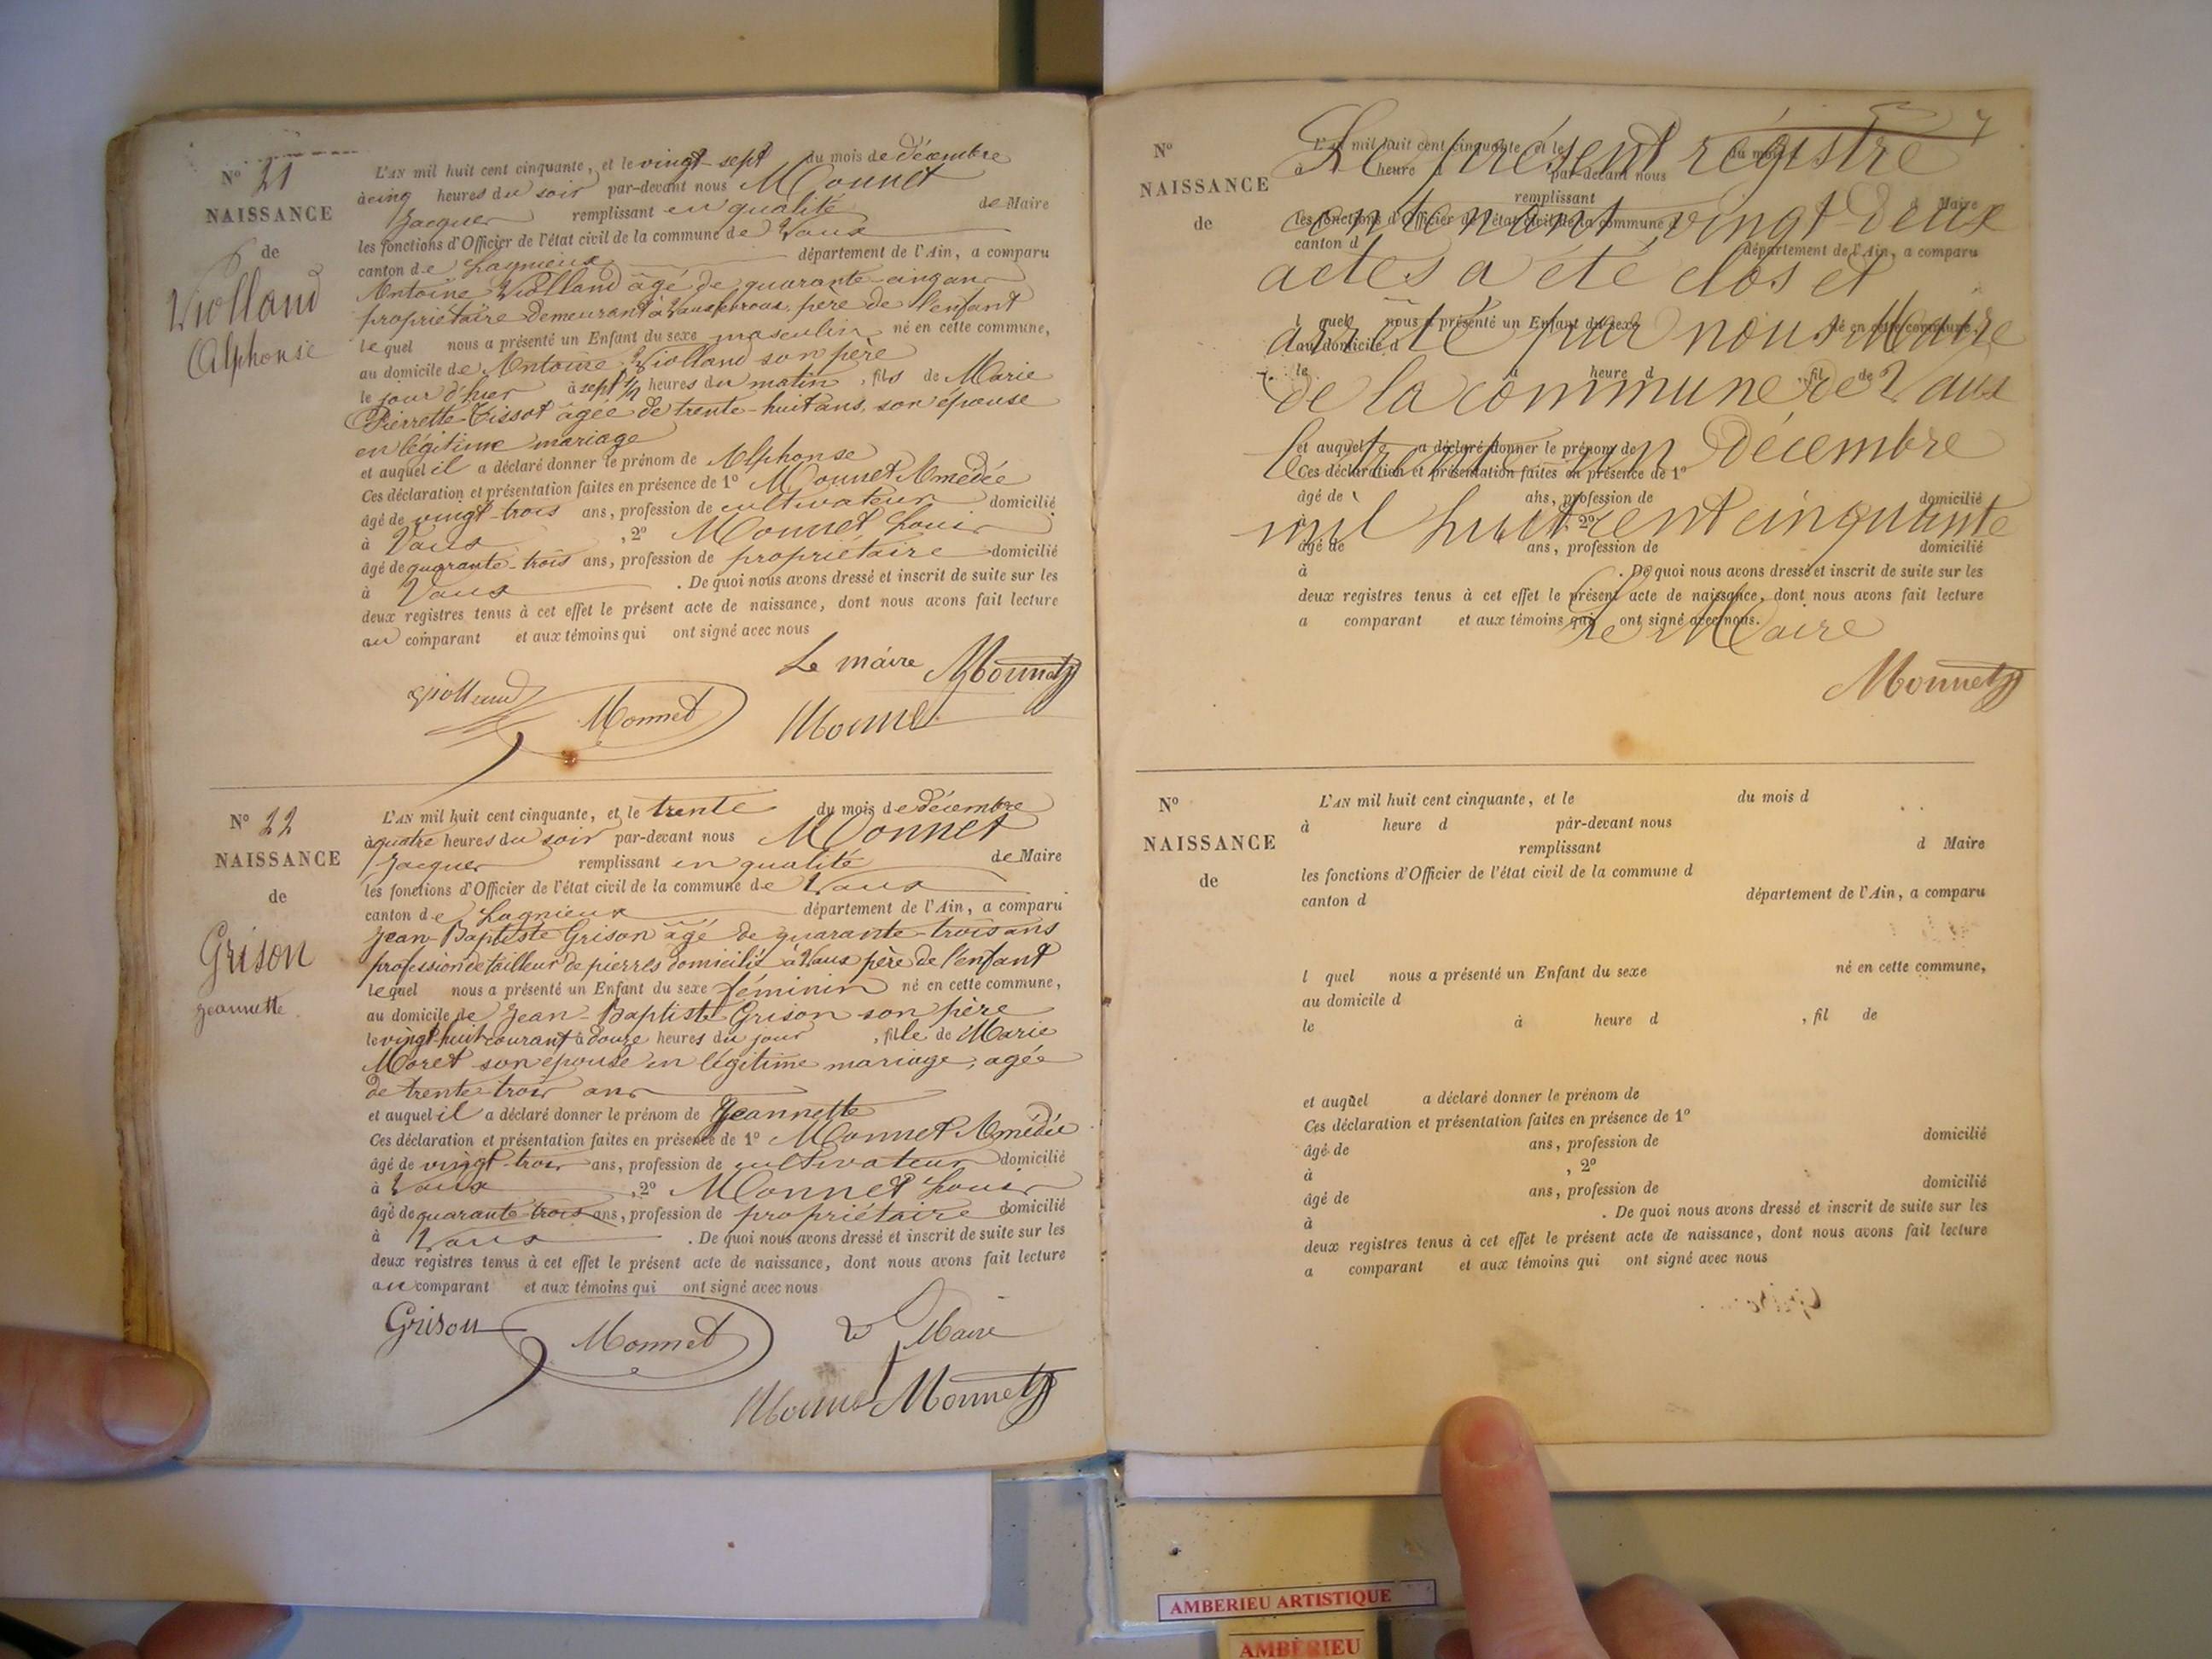 N° 21
NAISSANCE
de
Violland
Alphonse
L'AN mil huit cent cinquante, et le vingt-sept du mois de décembre
à cinq heures du soir par-devant nous Monnet
Jacques remplissant en qualité de Maire
les fonctions d'Officier de l'état civil de la commune de Vaux
canton de Lagnieux département de l'Ain, a comparu
Antoine Violland âgé de quarante-cinq ans
propriétaire demeurant à Vaux père de l'enfant
lequel nous a présenté un Enfant du sexe masculin né en cette commune,
au domicile de Antoine Violland son père
le jour d'hier à sept ½ heures du matin, fils de Marie
Pierrette Tissot âgée de trente-huit ans, son épouse
en légitime mariage
et auquel il a déclaré donner le prénom de Alphonse
Ces déclaration et présentation faites en présence de 1° Monnet Amédée
âgé de vingt-trois ans, profession de cultivateur domicilié
à Vaux, 2° Monnet Louis
âgé de quarante-trois ans, profession de propriétaire domicilié
à Vaux. De quoi nous avons dressé et inscrit de suite sur les
deux registres tenus à cet effet le présent acte de naissance, dont nous avons fait lecture
au comparant et aux témoins qui ont signé avec nous
Le maire Monnet
Violland Monnet Monnet
N° 22
NAISSANCE
de
Grison
Jeannette
L'AN mil huit cent cinquante, et le trente du mois de décembre
à quatre heures du soir par-devant nous Monnet
Jacques remplissant en qualité de Maire
les fonctions d'Officier de l'état civil de la commune de Vaux
canton de Lagnieux département de l'Ain, a comparu
Jean-Baptiste Grison âgé de quarante-trois ans
profession de tailleur de pierres domicilié à Vaux père de l'enfant
lequel nous a présenté un Enfant du sexe féminin né en cette commune,
au domicile de Jean-Baptiste Grison son père
le vingt-huit courant à douze heures du jour, fille de Marie
Moret son épouse en légitime mariage, agée
de trente-trois ans
et auquel il a déclaré donner le prénom de Jeannette
Ces déclaration et présentation faites en présence de 1° Monnet Amédée
âgé de vingt-trois ans, profession de cultivateur domicilié
à Vaux, 2° Monnet Louis
âgé de quarante-trois ans, profession de propriétaire domicilié
à Vaux. De quoi nous avons dressé et inscrit de suite sur les
deux registres tenus à cet effet le présent acte de naissance, dont nous avons fait lecture
au comparant et aux témoins qui ont signé avec nous
Grison Monnet Le Maire
Monnet Monnet
N°
NAISSANCE
de
Le présent régistre
L'AN mil huit cent cinquante, et le du mois
à heure d par-devant nous
remplissant d Maire
contenant vingt-deux
les fonctions d'Officier de l'état civil de la commune d
canton d département de l'Ain, a comparu
actes a été clos et
l quel nous a présenté un Enfant du sexe né en cette commune,
arrêté par nous Maire
au domicile d
le à heure d, fil de
de la commune de Vaux
et auquel a déclaré donner le prénom de
le trente un Décembre
Ces déclaration et présentation faites en présence de 1°
âgé de ans, profession de domicilié
à, 2°
mil huit cent cinquante
âgé de ans, profession de domicilié
à. De quoi nous avons dressé et inscrit de suite sur les
deux registres tenus à cet effet le présent acte de naissance, dont nous avons fait lecture
a comparant et aux témoins qui ont signé avec nous.
Le Maire
Monnet
N°
NAISSANCE
de
L'AN mil huit cent cinquante, et le du mois d
à heure d par-devant nous
remplissant d Maire
les fonctions d'Officier de l'état civil de la commune d
canton d département de l'Ain, a comparu
l quel nous a présenté un Enfant du sexe né en cette commune,
au domicile d
le à heure d, fil de
et auquel a déclaré donner le prénom de
Ces déclaration et présentation faites en présence de 1°
âgé de ans, profession de domicilié
à, 2°
âgé de ans, profession de domicilié
à. De quoi nous avons dressé et inscrit de suite sur les
deux registres tenus à cet effet le présent acte de naissance, dont nous avons fait lecture
a comparant et aux témoins qui ont signé avec nous
AMBERIEU ARTISTIQUE
AMBERIEU